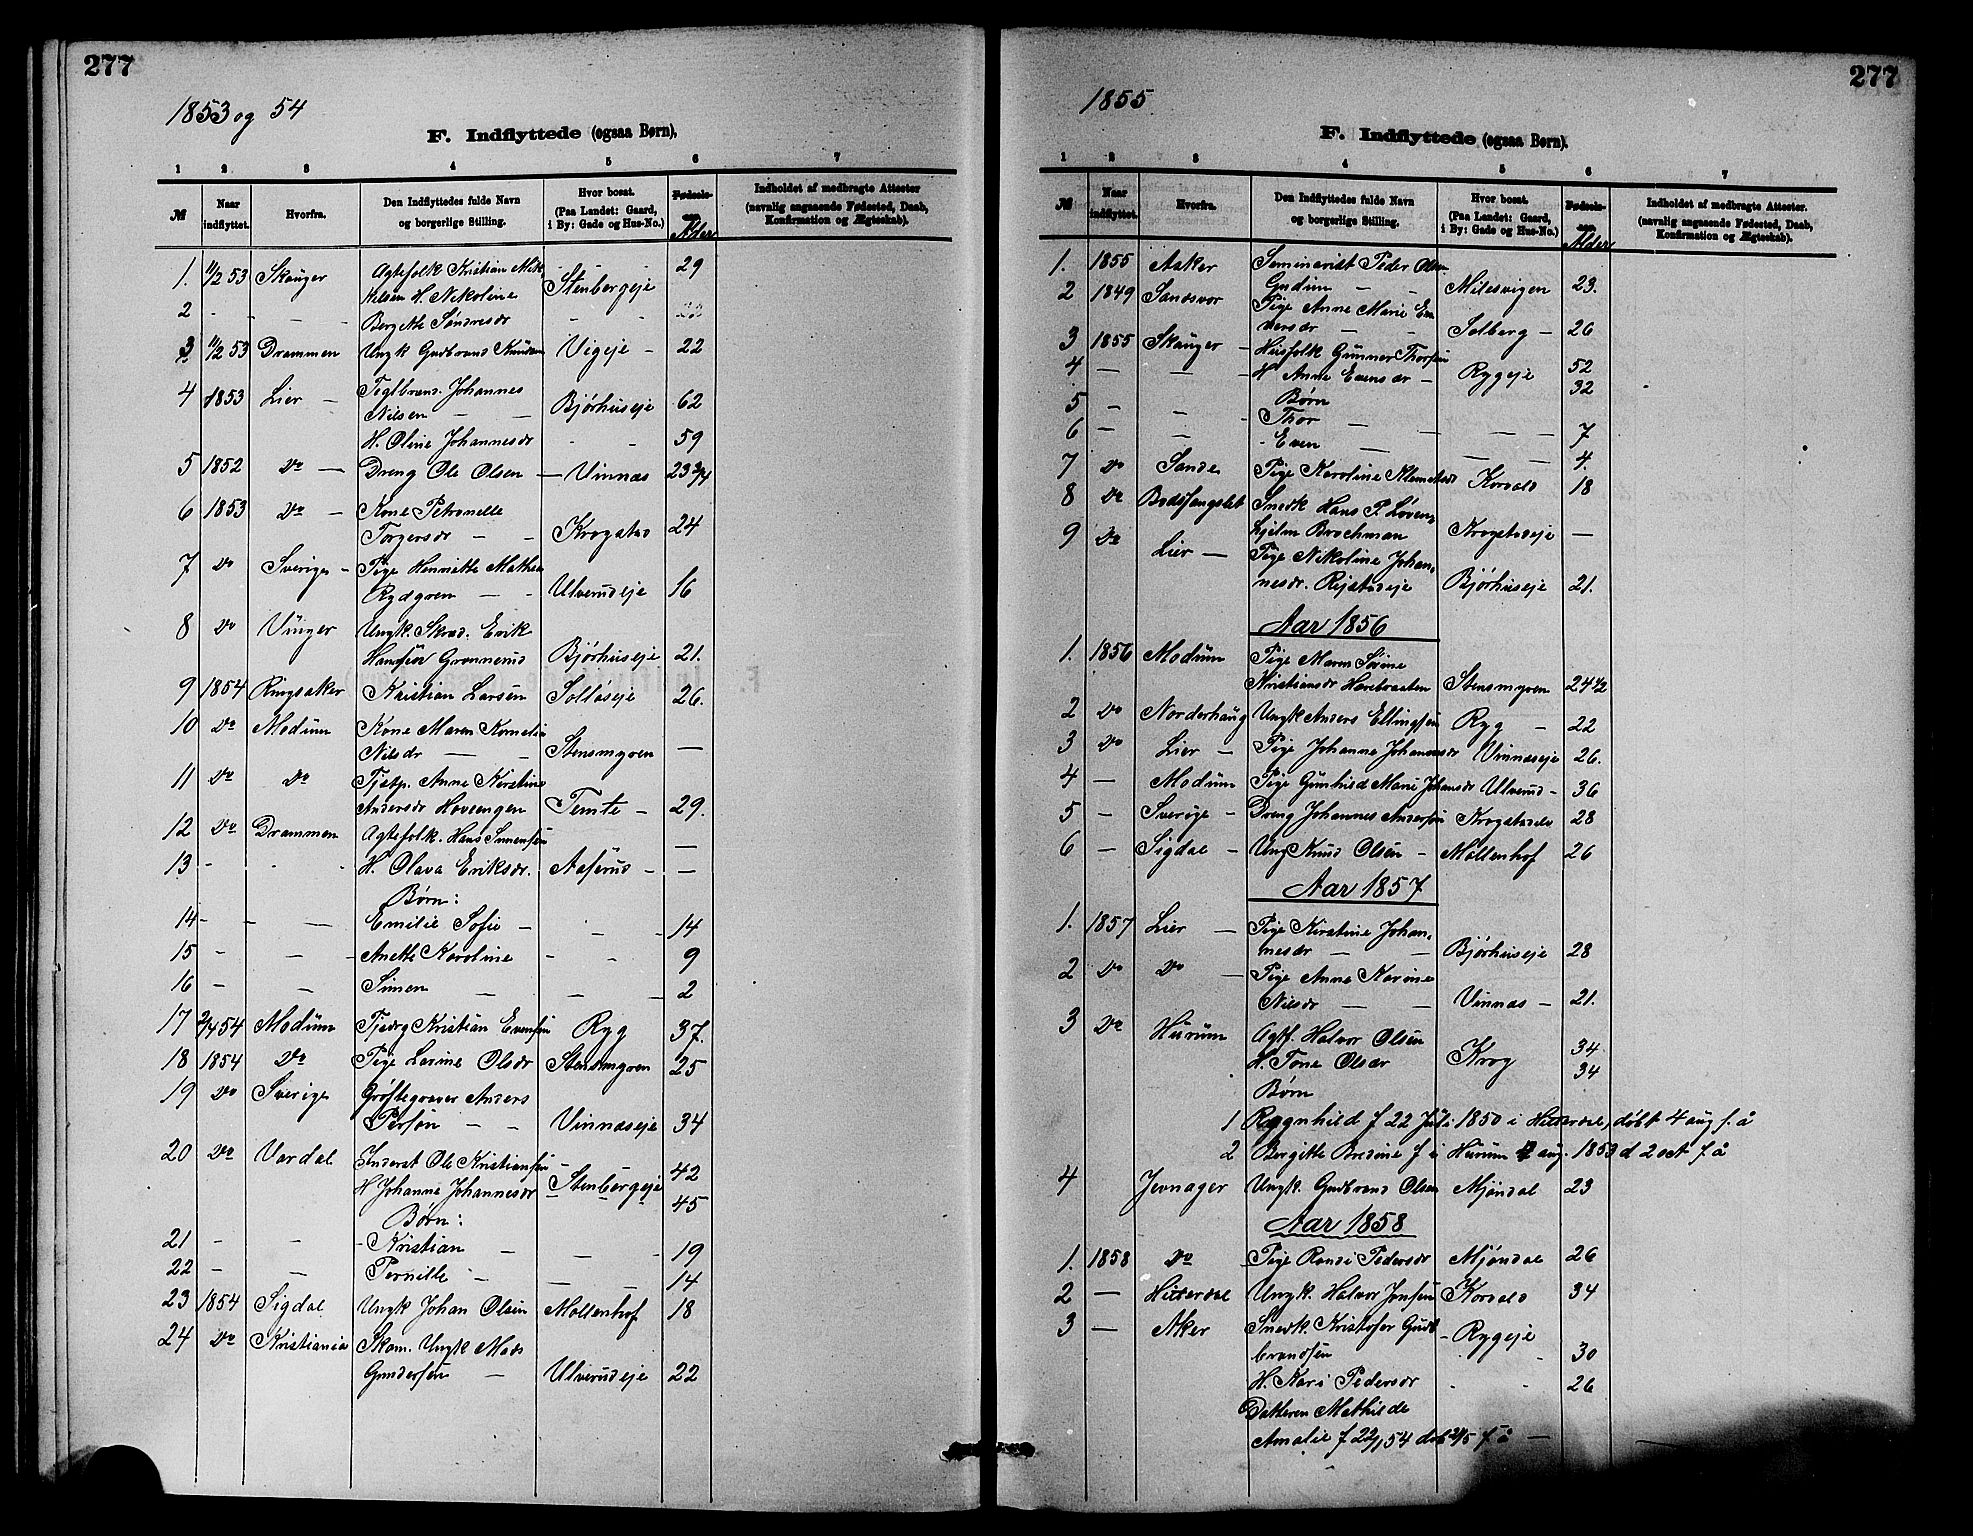 277
1853 og 54
F. Indflyttede (ogsaa Børn).
1 2 3 4 5 6 7
№ Naar indflyttet. Hvorfra. Den Indflyttedes fulde Navn og borgerlige Stilling. Hvor bosat. (Paa Landet: Gaard, i By: Gade og Hus-No.) Fødselsaar. Alder Indholdet af medbragte Attester (navnlig angaaende Fødested, Daab, Konfirmation og Ægteskab).
1. 11/2 53 Skauger Agtefolk Kristian Mik
Nilsen H. Nikoline Stenbergeje 29
2 - - - Bergitte Søndresdr - -
3 11/2 53 Drammen Ungk Gudbrand Knudsen Vigeje - 22
4 1853 Lier - Teglbrænd. Johannes
Nilsen - - Bjørhuseje 62
H. Oline Johannesdr - - 59
5 1852 do - Dreng Ole Olsen - Vinnæs 23 3/4
6 1853 do - Kone Petronelle
Torgersdr - - Krogstad 24
7 do Sverige - Pige Henriette Mathea
Rydgren - - Ulverudeje 16
8 do Vinger Ungk. Skræd. Erik
Hansøn Grønnerud Bjørhuseje 21.
9 1854 Ringsaker Kristian Larsen Solløseje 26.
10 do Modum Kone Maren Kornelia
Nilsdr - - Stensmyren -
11 do do Tjstp. Anne Kirstine
Andersdr Hovsengen Temte - 29.
12 do Drammen Agtefolk. Hans Simensøn -
13 - - - H. Olava Eriksdr. Aaserud - -
Børn:
14 - - - Emilie Sofie - - - 14
15 - - - Anette Karoline - - 9
16 - - Simen - - - 2
17 2/4 54 Modum Tjedrg Kristian Evensøn Ryg 37.
18 1854 do Pige Lorine Olsdr Stensmyren 25
19 do Sverige Grøftegraver Anders
Persøn - - Vinnæseje 34
20 do Vardal Inderst Ole Kristiansøn - 42
H Johanne Johannesdr Stenbergeje 45
Børn:
21 - - - Kristian - - - 19
22 - - Pernille - - - 14
23 1854 Sigdal Ungk Johan Olsen Mollenhof 18
24 do Kristiania Skom. Ungk Mads
Gundersøn - Ulverudeje 22
277
1855
F. Indflyttede (ogsaa Børn).
1 2 3 4 5 6 7
№ Naar indflyttet. Hvorfra. Den Indflyttedes fulde Navn og borgerlige Stilling. Hvor bosat. (Paa Landet: Gaard, i By: Gade og Hus-No.) Fødselsaar. Alder Indholdet af medbragte Attester. (navnlig angaaende Fødested, Daab, Konfirmation og Ægteskab).
1. 1855 Asker Seminarist Peder Olsen
Gudim - - Milesvigen 23.
2 1849 Sandsvær Pige Anne Marie En
dersdr - - Solberg - 26
3 1855 Skauger - Husfolk Gunner Thorsøn 52
4 - - - H Anne Evensdr - Rygeje 32
Børn
5 - - - Thor - - - 7
6 - - - Even - 4.
7 do Sande Pige Karoline Klemetsdr Korvald 18
8 do Bodsfængslet Snedk Hans P. Løven,
hjelm Brochman Krogstadeje -
9 do Lier - Pige Nikoline Johan,
nesdr. Rejstadeje Bjørhuseje 21.
Aar 1856
1. 1856 Modum Pige Maren Sørine
Kristiansdr Horebraaten Stensmyren 24 1/2
2 do Norderhaug Ungk Anders Ellingsøn Ryg - 22
3 do Lier - Pige Johanne Johannesdr Vinnæseje 26.
4 - Modum Pige Gunhild Marie Johansdr Ulverud - 36
5 - Sverige - Dreng Johannes Andersøn Krogstadeje 28
6 - Sigdal - Ung Knud Olsen - Mollenhof 26
Aar 1857
1. 1857 Lier - Pige Kirstine Johan,
nesdr - - Bjørhuseje 28
2 do do - Pige Anne Karine
Nilsdr - - Vinnæs - 21.
3 do Hurum Agtf. Halvor Olsen 34
H. Tone Olsdr Krog 34
Børn
1 Ragnhild f 22 Juli 1850 i Hitterdal, døbt 4 aug f. å
2 Bergitte Bredine f i Hurum 7 aug. 1853 d 2 oct f å
4 Jevnager Ungk. Gudbrand Olsen Mjøndal 23
Aar 1858
1. 1858 do Pige Randi Pedersdr Mjøndal 26
2 - Hitterdal Ungk. Halvor Jonsøn Korvald 34
3 - Aker Snedk. Kristofer Gudb
brandsøn - Rygeje 30
H. Kari Pedersdr - - 26
Datteren Mathilde
Amalie f 22/1 54 døb 21/5 f å -